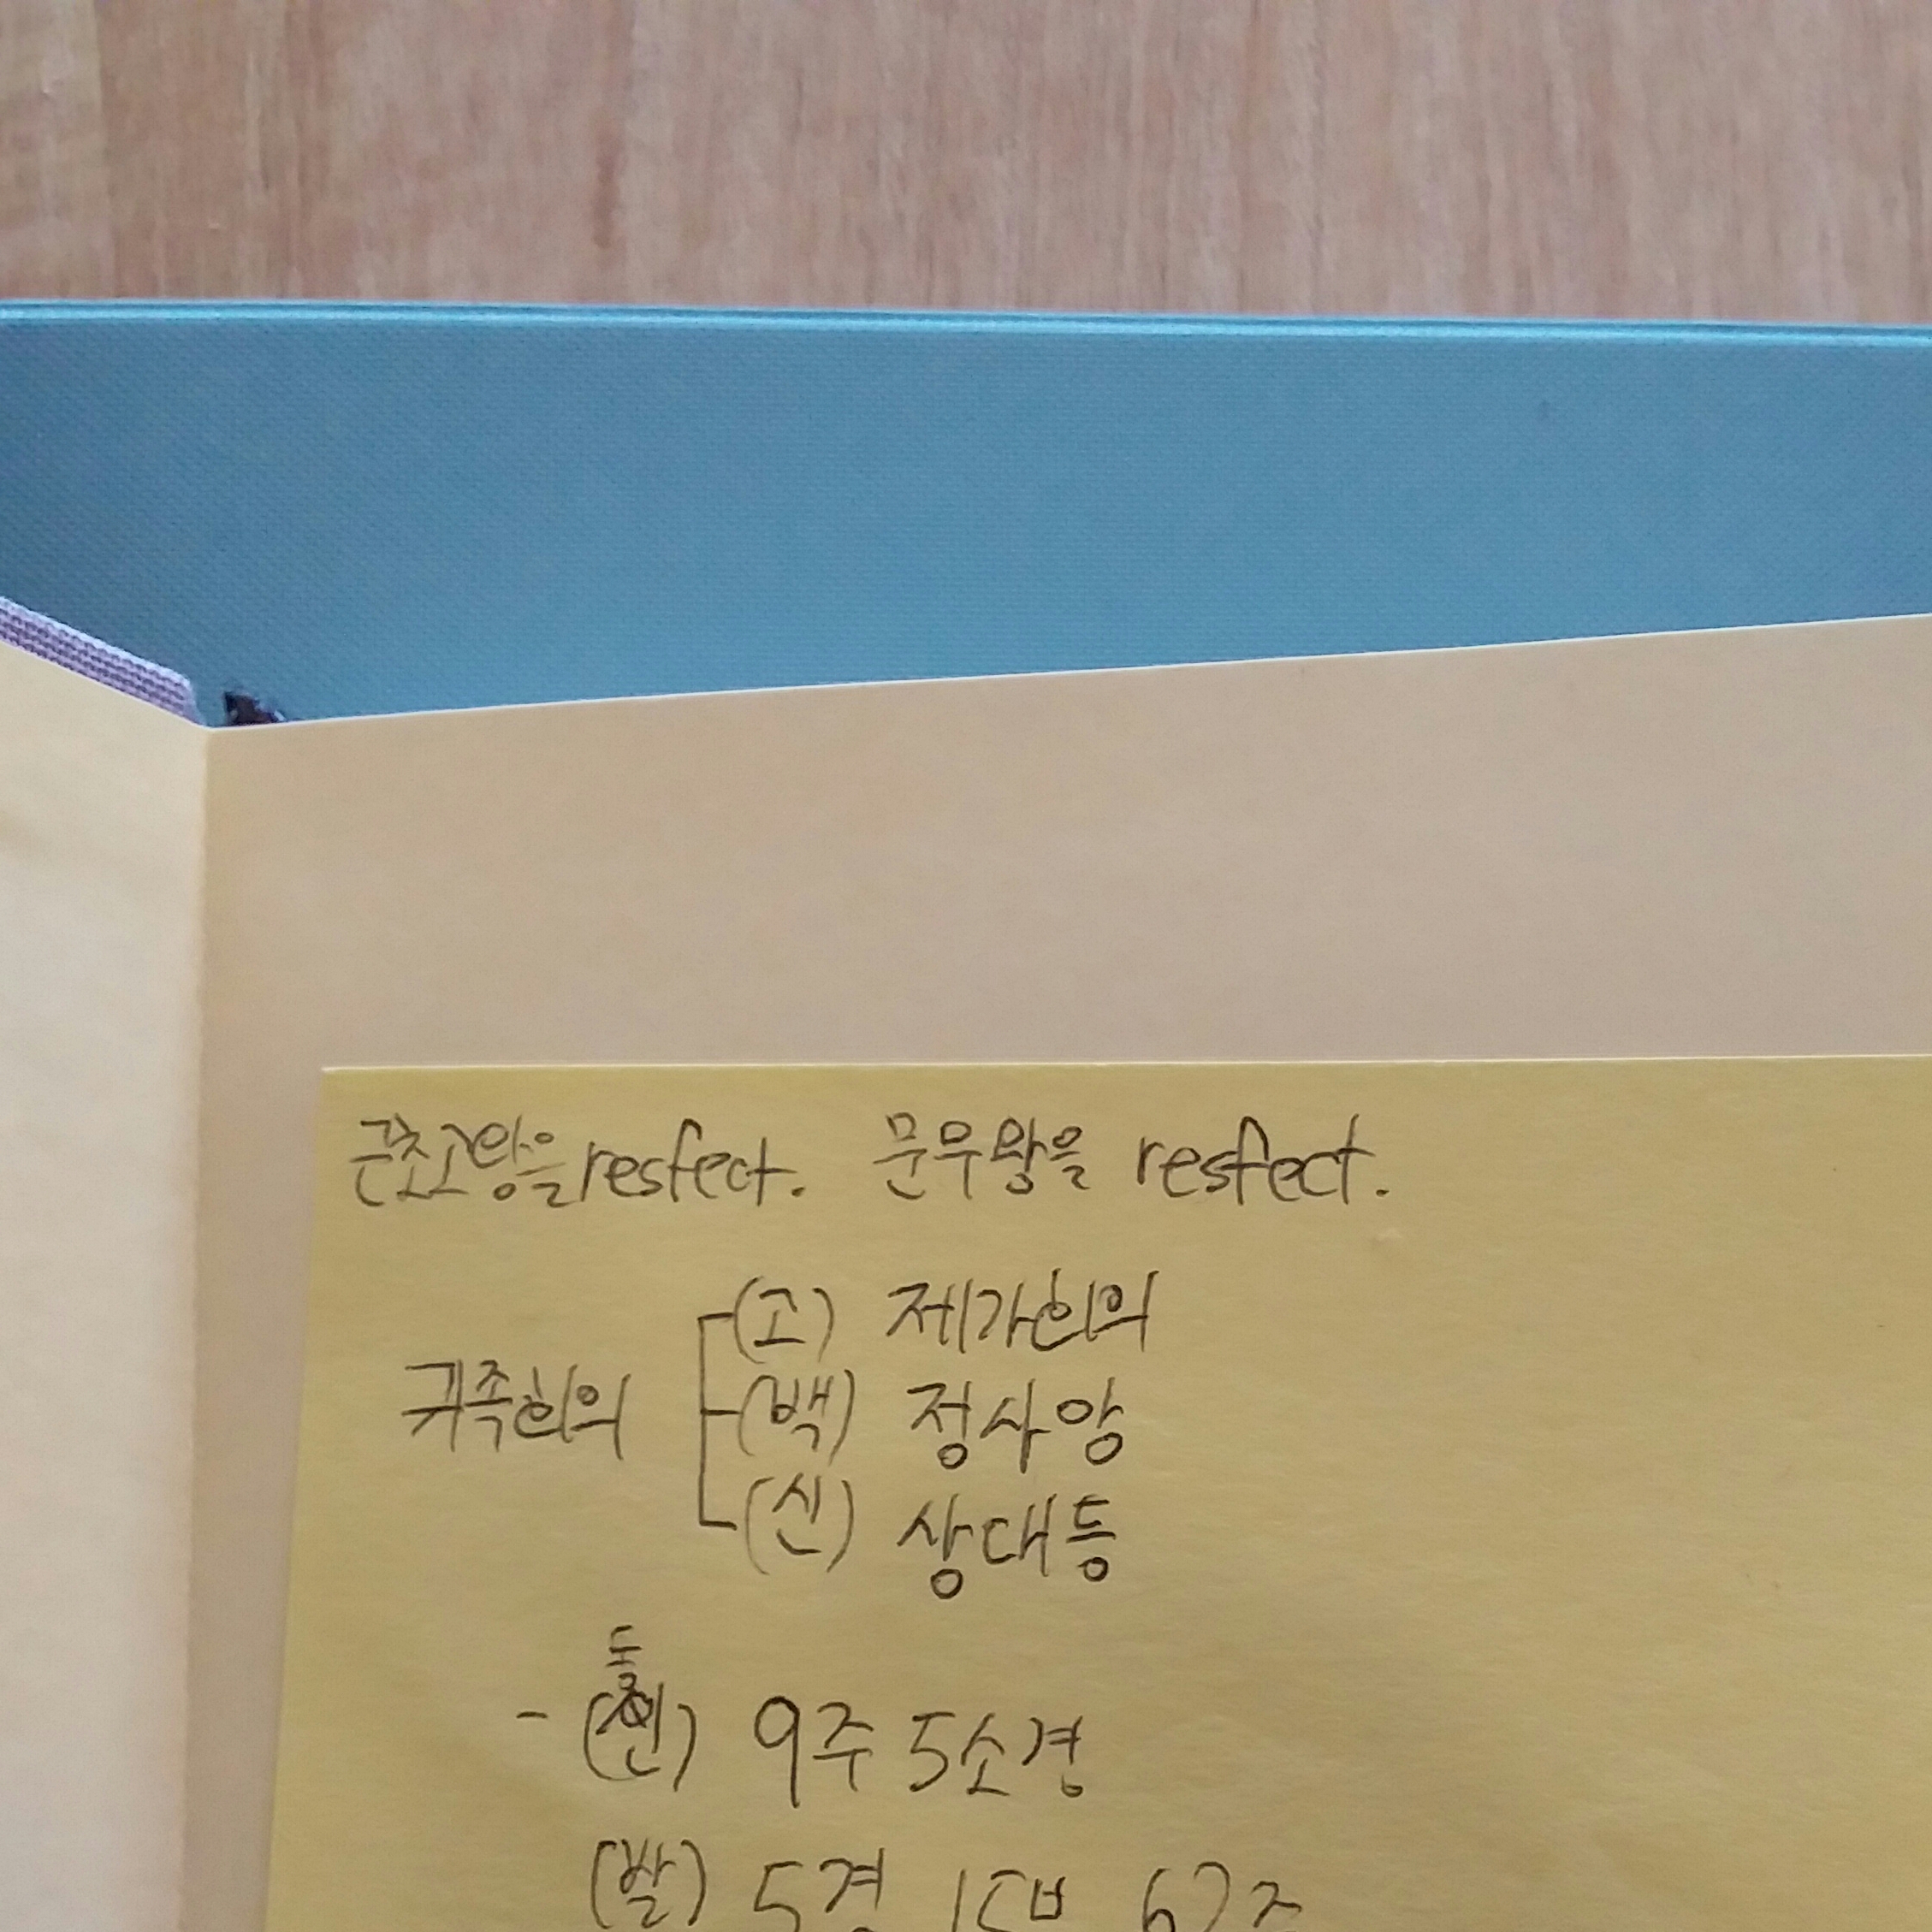 근초고왕을 resfect. 문무왕을 resfect.
귀족회의
(고) 제가회의
(백) 정사암
(신) 상대등
- (통신) 9주 5소경
(발) 5경 15부 62주